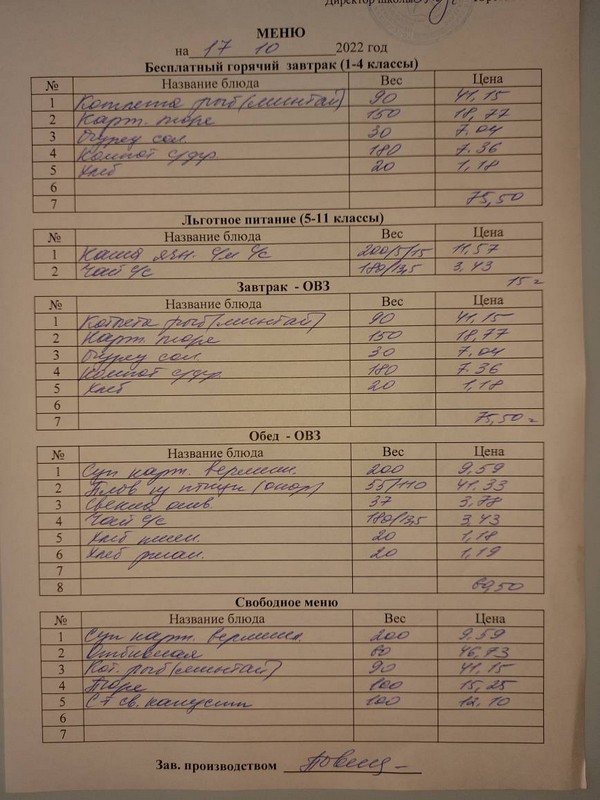 Директор школы
МЕНЮ
на 17 10 2022 год
Бесплатный горячий завтрак (1-4 классы)
№ Название блюда Вес Цена
1 Котлета рыб (минтай) 90 41,15
2 Карт. пюре 150 18,77
3 Огурец сол. 30 7.04
4 Компот с/фр 180 7.36
5 Хлеб 20 1,18
6
7 75,50
Льготное питание (5-11 классы)
№ Название блюда Вес Цена
1 Каша ячн. с/м с/с 200/5/15 11,57
2 Чай с/с 180/13,5 3,43
15=
Завтрак - ОВЗ
№ Название блюда Вес Цена
1 Котлета рыб (минтай) 90 41,15
2 Карт. пюре 150 18,77
3 Огурец сол. 30 7,04
4 Компот с/фр 180 7.36
5 Хлеб 20 1,18
6
7 75,50=
Обед - ОВЗ
№ Название блюда Вес Цена
1 Суп карт. вермиш. 200 9.59
2 Плов из птицы (окор) 55/110 41,33
3 Свекла 37 3,78
4 Чай с/с 180/13,5 3,43
5 Хлеб пшен. 20 1,18
6 Хлеб ржан. 20 1,19
7
8 60,50
Свободное меню
№ Название блюда Вес Цена
1 Суп карт. вермиш. 200 9.59
2 Отбивная 80 46,73
3 Кот. рыб (минтай) 90 41,15
4 Пюре 100 15,25
5 С-т св. капусты 100 12,10
6
7
Зав. производством